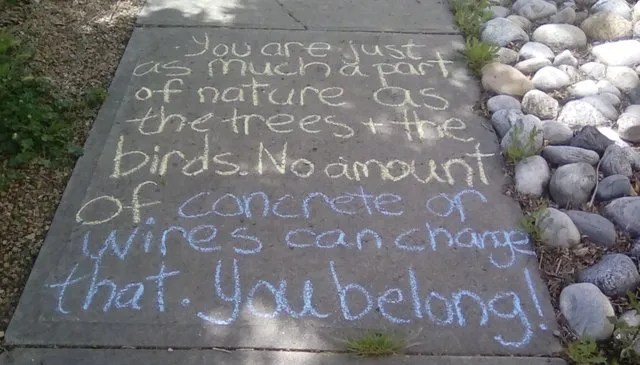 You are just
as much a part
of nature as
the trees + the
birds. No amount
of concrete or
wires can change
that. You belong!